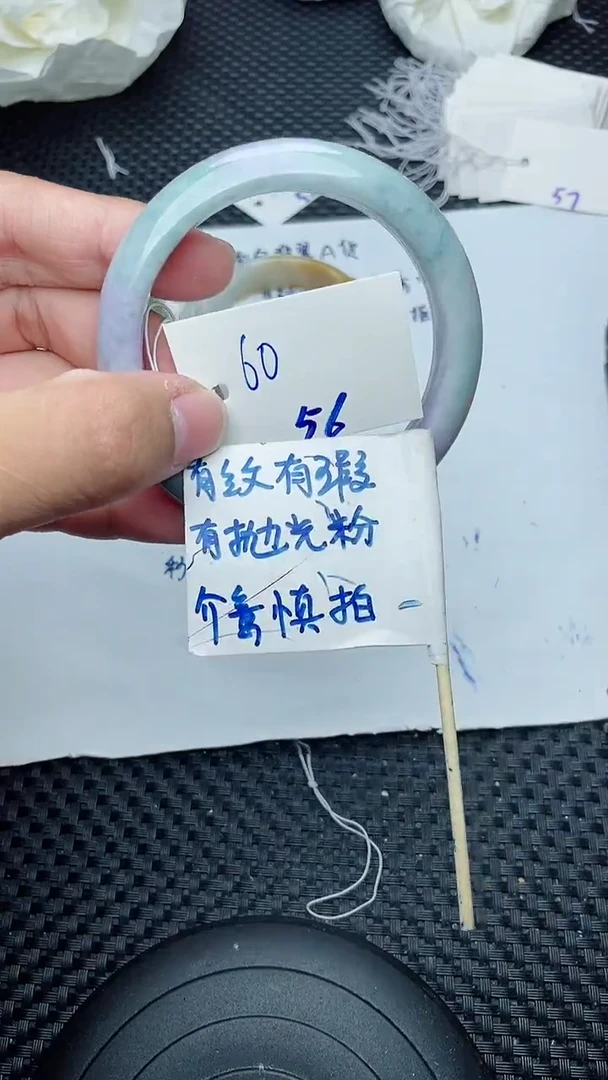 57
A货
60
56
有纹有瑕
有抛光粉
介意慎拍